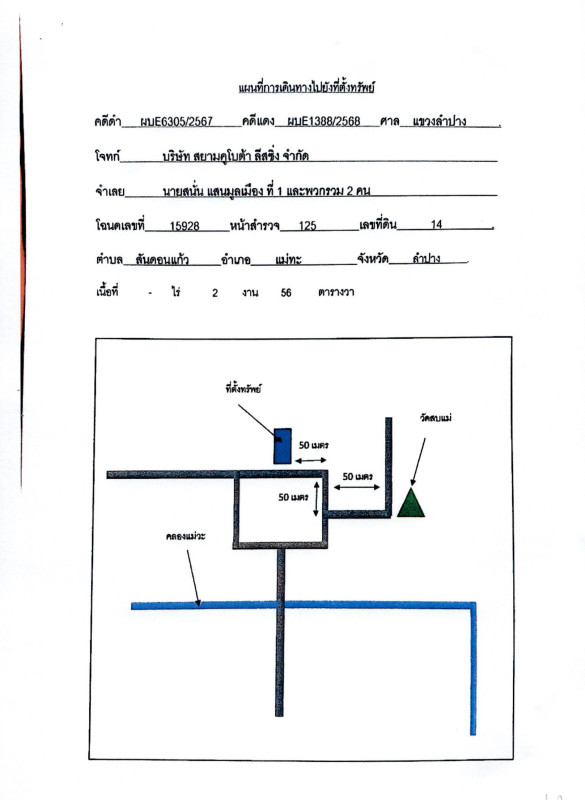 แผนที่การเดินทางไปยังที่ตั้งทรัพย์
คดีดำ ผบE6305/2567 คดีแดง ผบE1388/2568 ศาล แขวงลำปาง .
โจทก์ บริษัท สยามคูโบต้า ลีสซิ่ง จำกัด
จำเลย นายสนั่น แสนมูลเมือง ที่ 1 และพวกรวม 2 คน
โฉนดเลขที่ 15928 หน้าสำรวจ 125 เลขที่ดิน 14 .
ตำบล สันดอนแก้ว อำเภอ แม่ทะ จังหวัด ลำปาง .
เนื้อที่ - ไร่ 2 งาน 56 ตารางวา
ที่ตั้งทรัพย์
วัดสบแม่
50 เมตร
50 เมตร
50 เมตร
คลองแม่วะ